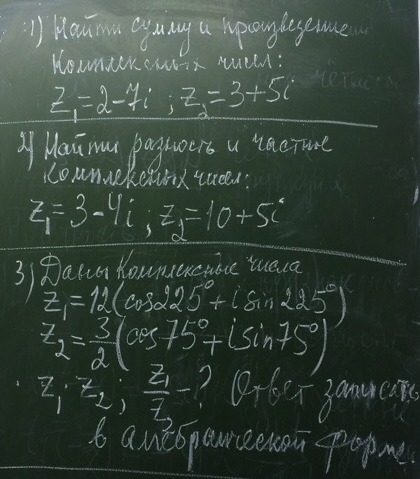 1) Найти сумму и произведение
комплексных чисел:
z₁=2-7i ; z₂=3+5i
2) Найти разность и частное
комплексных чисел:
z₁=3-4i ; z₂=10+5i
3) Даны комплексные числа
z₁=12(cos225°+i sin225°)
z₂=3/2(cos75°+i sin75°)
z₁·z₂ ; z₁/z₂ -? Ответ записать
в алгебраической форме.